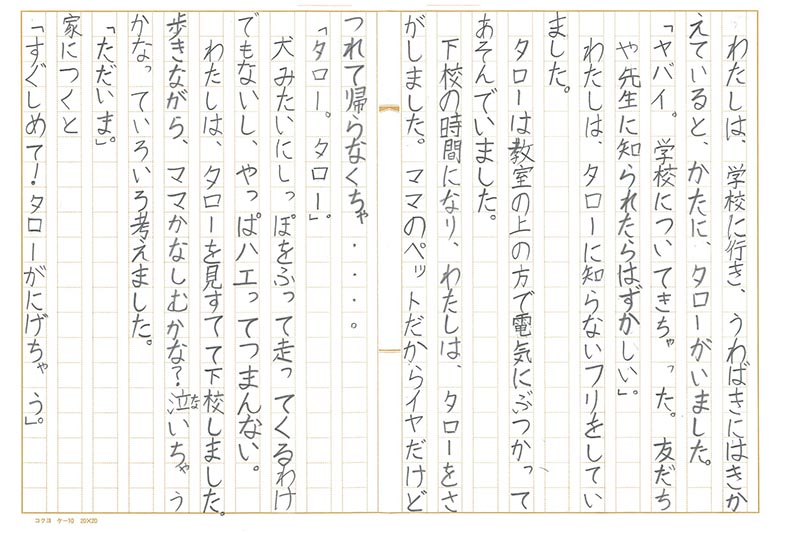 わたしは、学校に行き、うわばきにはきか
えていると、かたに、タローがいました。
「ヤバイ。学校についてきちゃった。友だち
や先生に知られたらはずかしい」。
わたしは、タローに知らないフリをしてい
ました。
タローは教室の上の方で電気にぶつかって
あそんでいました。
下校の時間になり、わたしは、タローをさ
がしました。ママのペットだからイヤだけど
つれて帰らなくちゃ・・・・。
「タロー。タロー」。
犬みたいにしっぽをふって走ってくるわけ
でもないし、やっぱハエってつまんない。
わたしは、タローを見すてて下校しました。
歩きながら、ママかなしむかな？泣いちゃう
な
かなっていろいろ考えました。
「ただいま。」
家につくと
「すぐしめて！タローがにげちゃう」。
コクヨ ケ－10 20×20